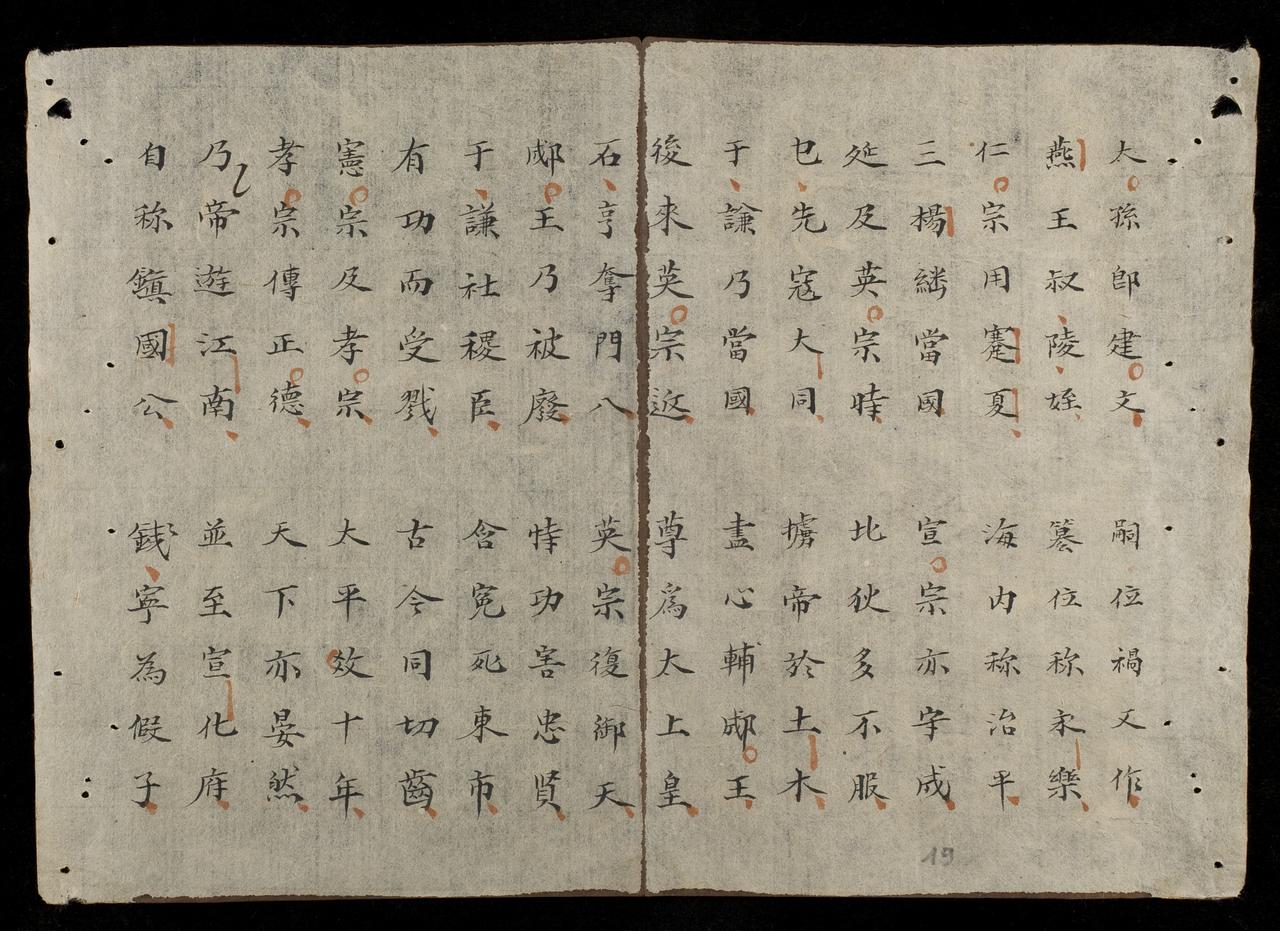 太孫卽建文 嗣位禍又作
燕王叔陵姪 篡位称永樂
仁宗用蹇夏 海内称治平
三楊継當国 宣宗亦守成
延及英宗時 北狄多不服
乜先寇大同 擄帝於土木
于謙乃當國 盡心輔郕王
後來英宗返 尊爲太上皇
石亨奪門入 英宗復御天
郕王乃被廢 悻功害忠贤
于謙社稷臣 含冤死東市
有功而受戮 古今同切齒
憲宗及孝宗 太平效十年
孝宗傳正德 天下亦晏然
乃帝遊江南 並至宣化府
自称鎭國公 銭寧為假子
19